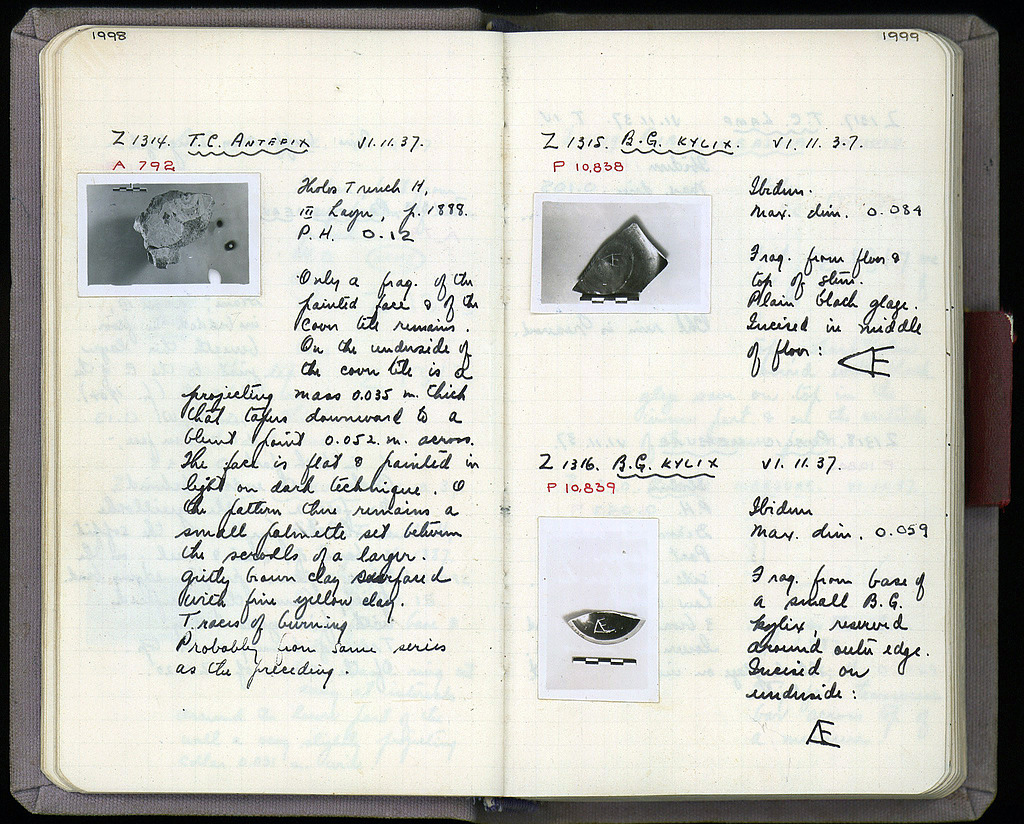 1998
Z 1314. T.C. ANTEFIX VI.11.37.
A 792
Tholos Trench H,
III Layer, p. 1888.
P.H. 0.12
Only a frag. of the
painted face & of the
cover tile remains.
On the underside of
the cover tile is a
projecting mass 0.035 m. thick
that tapers downward to a
blunt point 0.052 m. across.
The face is flat & painted in
light on dark technique. Of
the pattern there remains a
small palmette set between
the scrolls of a larger.
Gritty brown clay surfaced
with fine yellow clay.
Traces of burning.
Probably from same series
as the preceding.
1999
Z 1315. B.G. KYLIX. VI.11.37.
P 10,838
Ibidem.
Max. dim. 0.084
Frag. from floor &
top of stem.
Plain black glaze.
Incised in middle
of floor: Æ
E
Z 1316. B.G. KYLIX VI.11.37.
P 10,839
Ibidem
Max. dim. 0.059
Frag. from base of
a small B.G.
kylix, reserved
around outer edge.
Incised on
underside:
Æ
Æ